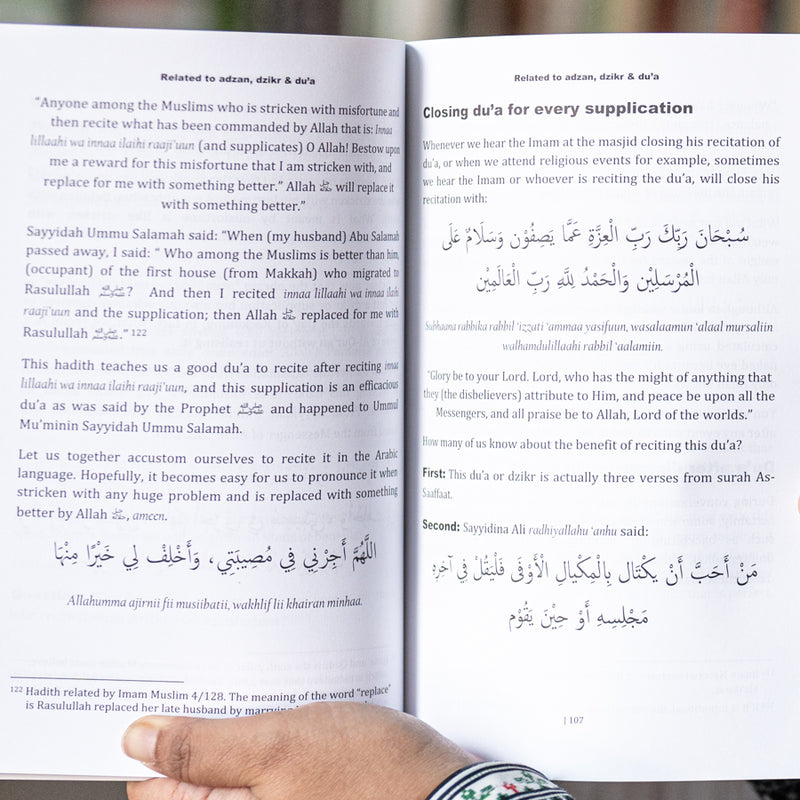 Related to adzan, dzikr & du’a
“Anyone among the Muslims who is stricken with misfortune and
then recite what has been commanded by Allah that is: Innaa
lillaahi wa innaa ilaihi raaji’uun (and supplicates) O Allah! Bestow upon
me a reward for this misfortune that I am stricken with, and
replace for me with something better.” Allah ﷻ will replace it
with something better.”
Sayyidah Ummu Salamah said: “When (my husband) Abu Salamah
passed away, I said: “ Who among the Muslims is better than him,
(occupant) of the first house (from Makkah) who migrated to
Rasulullah ﷺ? And then I recited innaa lillaahi wa innaa ilaihi
raaji’uun and the supplication; then Allah ﷻ replaced for me with
Rasulullah ﷺ.” 122
This hadith teaches us a good du’a to recite after reciting innaa
lillaahi wa innaa ilaihi raaji’uun, and this supplication is an efficacious
du’a as was said by the Prophet ﷺ and happened to Ummul
Mu’minin Sayyidah Ummu Salamah.
Let us together accustom ourselves to recite it in the Arabic
language. Hopefully, it becomes easy for us to pronounce it when
stricken with any huge problem and is replaced with something
better by Allah ﷻ, ameen.
اللَّهُمَّ أَجِرْنِي فِي مُصِيبَتِي، وَأَخْلِفْ لِي خَيْرًا مِنْهَا
Allahumma ajirnii fii musiibatii, wakhlif lii khairan minhaa.
122 Hadith related by Imam Muslim 4/128. The meaning of the word “replace”
is Rasulullah replaced her late husband by
Related to adzan, dzikr & du’a
Closing du’a for every supplication
Whenever we hear the Imam at the masjid closing his recitation of
du’a, or when we attend religious events for example, sometimes
we hear the Imam or whoever is reciting the du’a, will close his
recitation with:
سُبْحَانَ رَبِّكَ رَبِّ الْعِزَّةِ عَمَّا يَصِفُوْن وَسَلَامٌ عَلَى
الْمُرْسَلِيْن وَالْحَمْدُ لِلَّهِ رَبِّ الْعَالَمِيْن
Subhaana rabbika rabbil ‘izzati ‘ammaa yasifuun, wasalaamun ‘alaal mursaliin
walhamdulillaahi rabbil ‘aalamiin.
“Glory be to your Lord. Lord, who has the might of anything that
they (the disbelievers) attribute to Him, and peace be upon all the
Messengers, and all praise be to Allah, Lord of the worlds.”
How many of us know about the benefit of reciting this du’a?
First: This du’a or dzikr is actually three verses from surah As-
Saaffaat.
Second: Sayyidina Ali radhiyallahu ‘anhu said:
مَنْ أَحَبَّ أَنْ يَكْتَال بِالْمِكْيَالِ الْأَوْفَى فَلْيَقُلْ فِي آخِرِهِ
مَجْلِسِهِ أَوْ حِيْنَ يَقُوْم
| 107